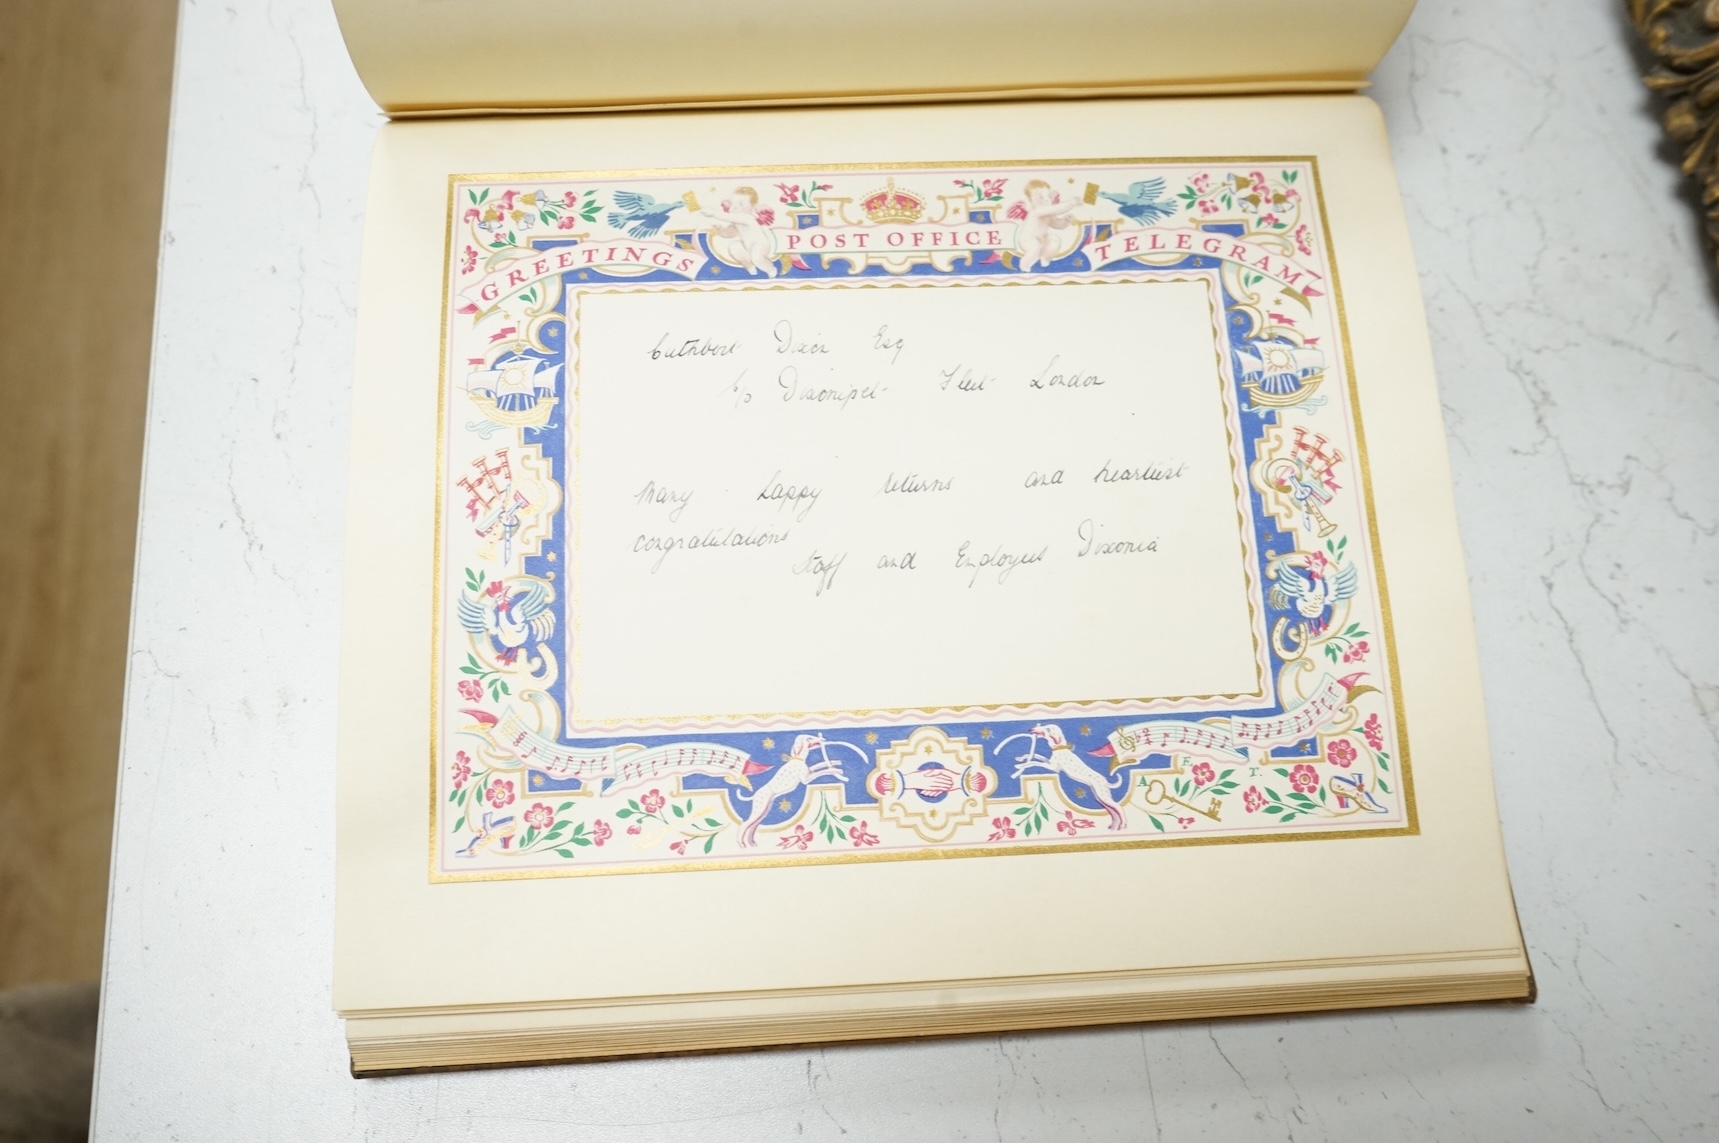 GREETINGS POST OFFICE TELEGRAM
Cuthbert Dixon Esq
c/o Dixonipet Fleet London
Many happy returns and heartiest
congratulations
Staff and Employees Dixonia
A. F. T.